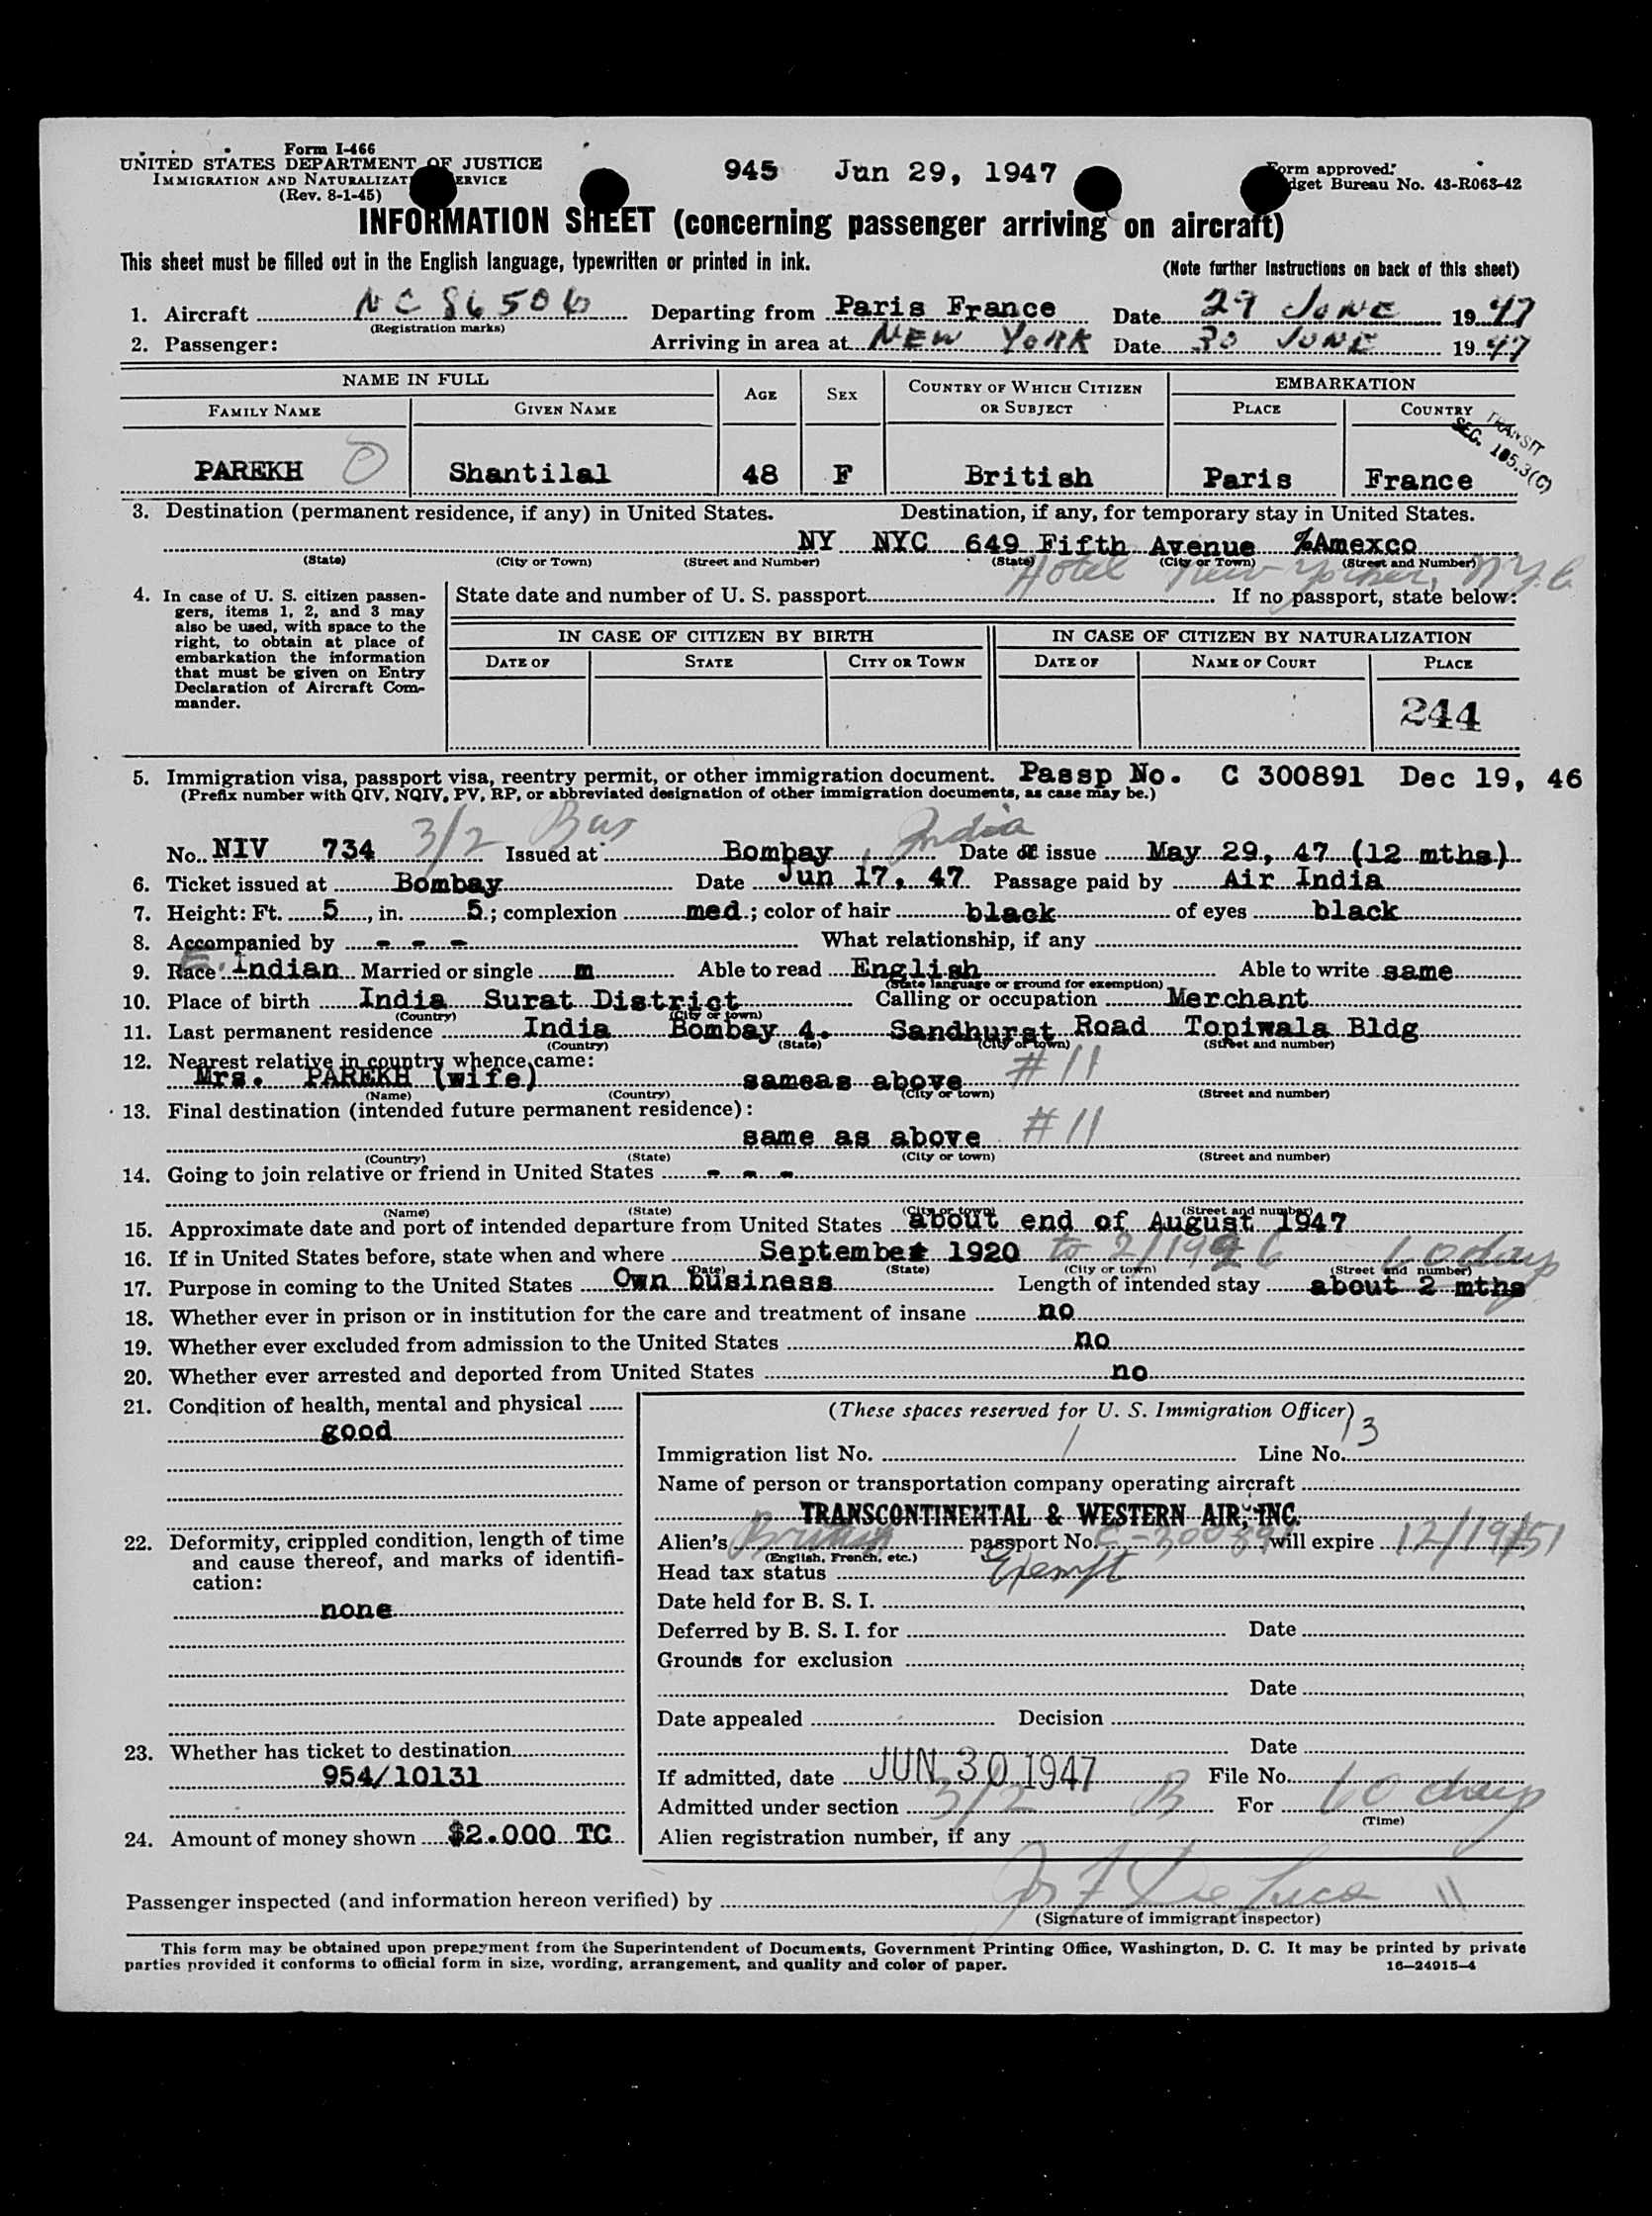 Form I-466
UNITED STATES DEPARTMENT OF JUSTICE
IMMIGRATION AND NATURALIZAT ERVICE
(Rev. 8-1-45)
945 Jun 29, 1947
orm approved.
dget Bureau No. 43-R063-42
INFORMATION SHEET (concerning passenger arriving on aircraft)
This sheet must be filled out in the English language, typewritten or printed in ink.
(Note further instructions on back of this sheet)
1. Aircraft NC 86506 Departing from Paris France Date 29 JUNE 1947
(Registration marks)
2. Passenger: Arriving in area at NEW YORK Date 30 JUNE 1947
NAME IN FULL AGE SEX COUNTRY OF WHICH CITIZEN OR SUBJECT EMBARKATION
FAMILY NAME GIVEN NAME PLACE COUNTRY
TRANSIT
SEC. 105.3(C)
PAREKH Shantilal 48 F British Paris France
3. Destination (permanent residence, if any) in United States. Destination, if any, for temporary stay in United States.
NY NYC 649 Fifth Avenue %Amexco
(State) (City or Town) (Street and Number) (State) (City or Town) (Street and Number)
Hotel New Yorker, N.Y.C.
4. In case of U. S. citizen passengers, items 1, 2, and 3 may also be used, with space to the right, to obtain at place of embarkation the information that must be given on Entry Declaration of Aircraft Commander.
State date and number of U. S. passport If no passport, state below:
IN CASE OF CITIZEN BY BIRTH IN CASE OF CITIZEN BY NATURALIZATION
DATE OF STATE CITY OR TOWN DATE OF NAME OF COURT PLACE
244
5. Immigration visa, passport visa, reentry permit, or other immigration document. Passp No. C 300891 Dec 19, 46
(Prefix number with QIV, NQIV, PV, RP, or abbreviated designation of other immigration documents, as case may be.)
No. NIV 734 3/2 Bus Issued at Bombay, India Date of issue May 29, 47 (12 mths)
6. Ticket issued at Bombay Date Jun 17, 47 Passage paid by Air India
7. Height: Ft. 5, in. 5; complexion med.; color of hair black of eyes black
8. Accompanied by - - - What relationship, if any
9. Race E. Indian Married or single m Able to read English Able to write same
(State language or ground for exemption)
10. Place of birth India Surat District Calling or occupation Merchant
(Country) (City or town)
11. Last permanent residence India Bombay 4. Sandhurst Road Topiwala Bldg
(Country) (State) (City or town) (Street and number)
12. Nearest relative in country whence came:
Mrs. PAREKH (wife) sameas above #11
(Name) (Country) (City or town) (Street and number)
13. Final destination (intended future permanent residence):
same as above #11
(Country) (State) (City or town) (Street and number)
14. Going to join relative or friend in United States - - -
(Name) (State) (City or town) (Street and number)
15. Approximate date and port of intended departure from United States about end of August 1947
16. If in United States before, state when and where September 1920 to 2/1926 60 days
(Date) (State) (City or town) (Street and number)
17. Purpose in coming to the United States Own business Length of intended stay about 2 mths
18. Whether ever in prison or in institution for the care and treatment of insane no
19. Whether ever excluded from admission to the United States no
20. Whether ever arrested and deported from United States no
21. Condition of health, mental and physical
good
22. Deformity, crippled condition, length of time and cause thereof, and marks of identification:
none
23. Whether has ticket to destination
954/10131
24. Amount of money shown $2.000 TC
(These spaces reserved for U. S. Immigration Officer)
Immigration list No. 1 Line No. 13
Name of person or transportation company operating aircraft
TRANSCONTINENTAL & WESTERN AIR, INC.
Alien's British passport No. C-300891 will expire 12/19/51
(English, French, etc.)
Head tax status Exempt
Date held for B. S. I.
Deferred by B. S. I. for Date
Grounds for exclusion
Date
Date appealed Decision
Date
If admitted, date JUN 30 1947 File No.
Admitted under section 3/2 B For 60 days
(Time)
Alien registration number, if any
Passenger inspected (and information hereon verified) by
(Signature of immigrant inspector)
This form may be obtained upon prepayment from the Superintendent of Documents, Government Printing Office, Washington, D. C. It may be printed by private
parties provided it conforms to official form in size, wording, arrangement, and quality and color of paper.
16—24915-4